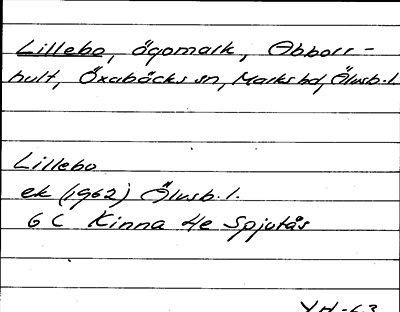 Lillebo, ägomark, Abborr-
hult, Öxabäcks sn, Marks hd, Älvsb. l.
Lillebo
ek (1962) Älvsb. l.
6 C Kinna 4e Spjutås